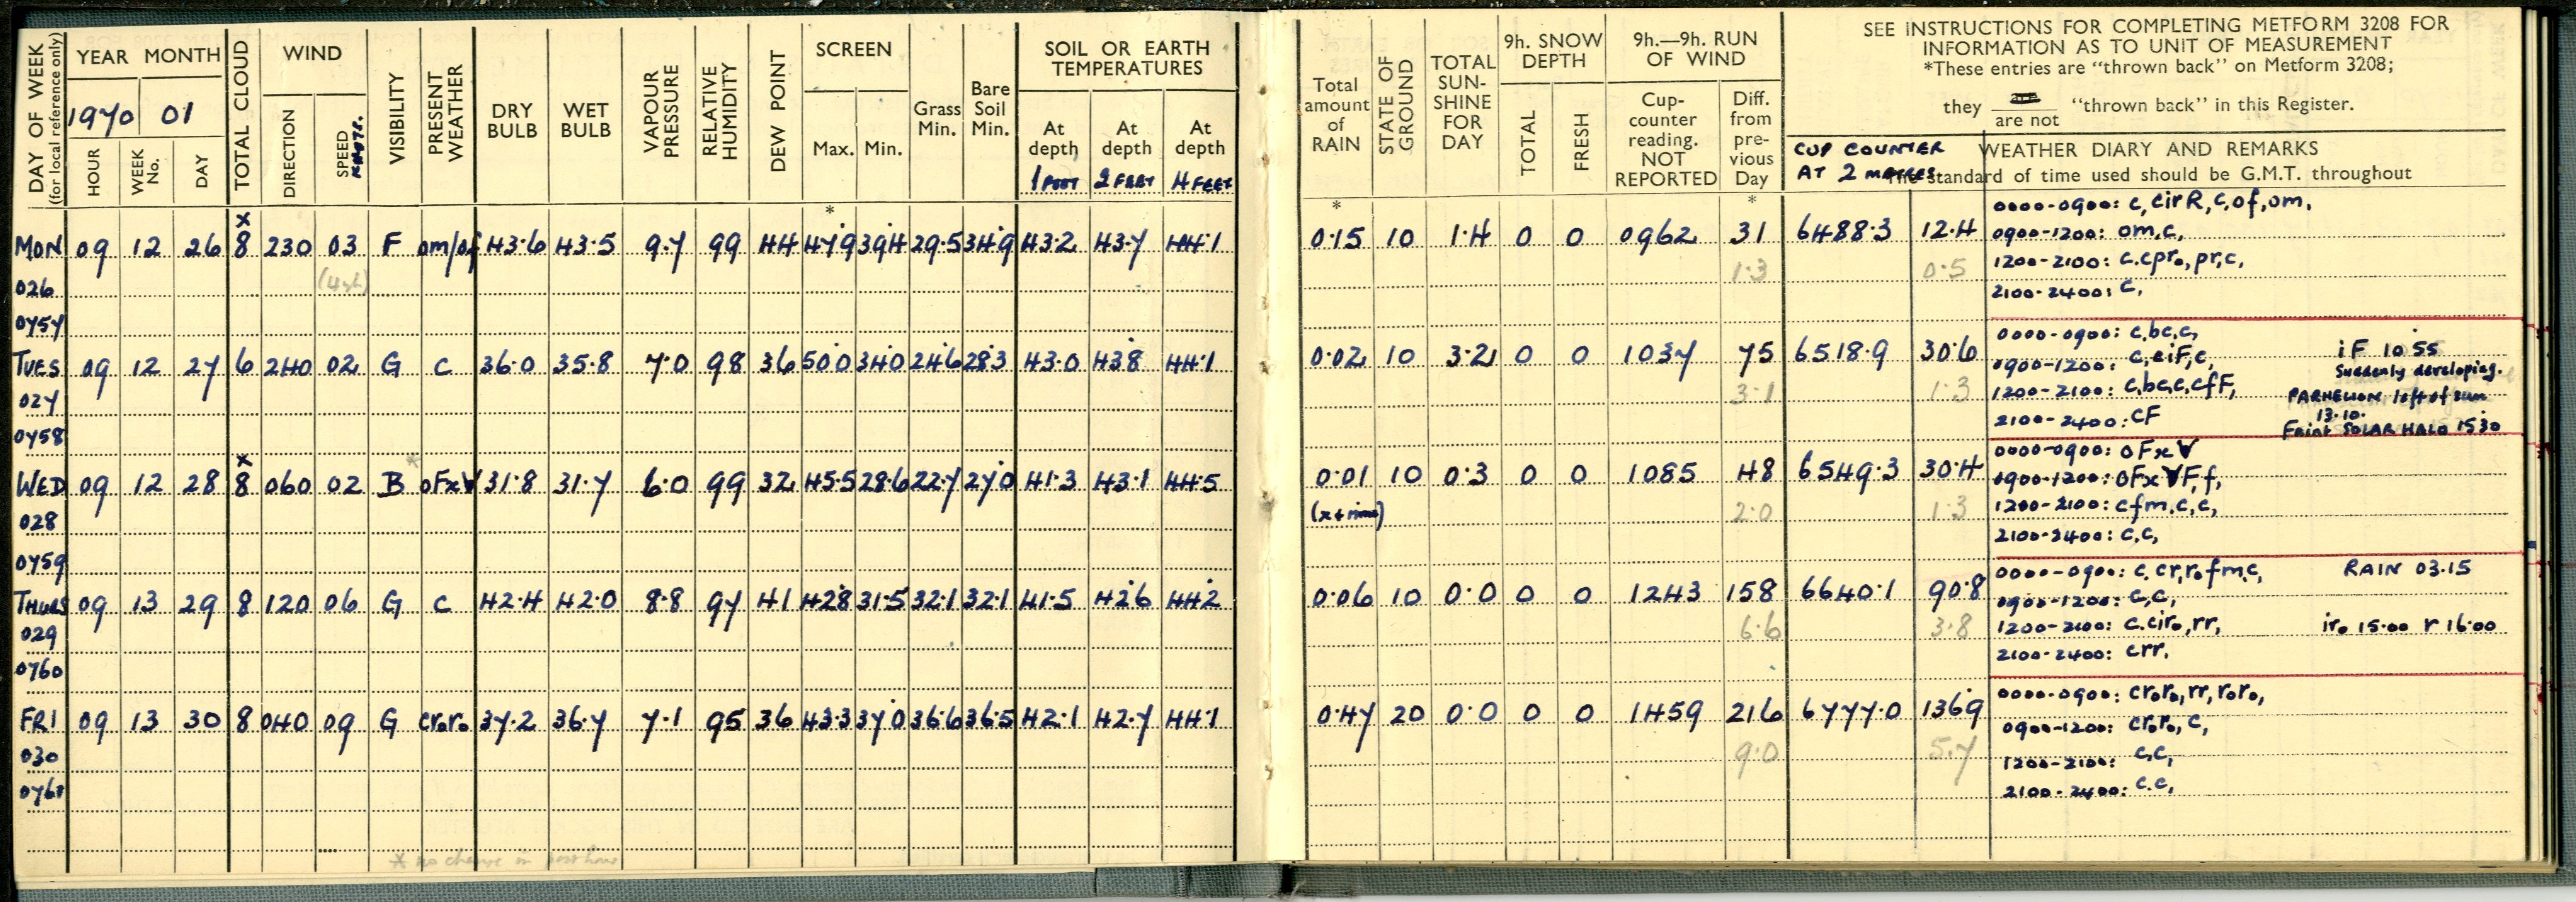 DAY OF WEEK
(for local reference only)
YEAR MONTH
1970 01
HOUR
WEEK No.
DAY
TOTAL CLOUD
WIND
DIRECTION
SPEED
KNOTS.
VISIBILITY
PRESENT WEATHER
DRY BULB
WET BULB
VAPOUR PRESSURE
RELATIVE HUMIDITY
DEW POINT
SCREEN
Max.
Min.
Grass Min.
Bare Soil Min.
SOIL OR EARTH TEMPERATURES
At depth 1 FOOT
At depth 2 FEET
At depth 4 FEET
Total amount of RAIN
STATE OF GROUND
TOTAL SUN-SHINE FOR DAY
9h. SNOW DEPTH
TOTAL
FRESH
9h.—9h. RUN OF WIND
Cup-counter reading. NOT REPORTED
Diff. from pre-vious Day
SEE INSTRUCTIONS FOR COMPLETING METFORM 3208 FOR
INFORMATION AS TO UNIT OF MEASUREMENT
*These entries are "thrown back" on Metform 3208;
they are not "thrown back" in this Register.
CUP COUNTER
AT 2 METRES
WEATHER DIARY AND REMARKS
The standard of time used should be G.M.T. throughout
* * *
MON 09 12 26 8 x 230 03 F om/of 43·6 43·5 9·7 99 44 47·9 39·4 29·5 34·9 43·2 43·7 44·1 0·15 10 1·4 0 0 0962 31 6488·3 12·4
026 1·3 0·5
0757
0000-0900: c, cirR, c, of, om,
0900-1200: om, c,
1200-2100: c. cpr₀, pr, c,
2100-2400: c,
TUES 09 12 27 6 240 02 G c 36·0 35·8 7·0 98 36 50·0 34·0 24·6 28·3 43·0 43·8 44·1 0·02 10 3·2 0 0 1037 75 6518·9 30·6
027 3·1 1·3
0758
0000-0900: c, bc, c,
0900-1200: c, ciF, c, iF 10 55
Suddenly developing.
1200-2100: c, bc, c, cfF, PARHELION left of sun
13·10.
2100-2400: cF Faint SOLAR HALO 1530
WED 09 12 28 8 x 060 02 B * oFxV 31·8 31·7 6·0 99 32 45·5 28·6 22·7 27·0 41·3 43·1 44·5 0·01 10 0·3 0 0 1085 48 6549·3 30·4
028 (x+rime) 2·0 1·3
0759
0000-0900: oFxV
0900-1200: oFxVF, f,
1200-2100: cfm, c, c,
2100-2400: c, c,
THURS 09 13 29 8 120 06 G c 42·4 42·0 8·8 97 41 42·8 31·5 32·1 32·1 41·5 42·6 44·2 0·06 10 0·0 0 0 1243 158 6640·1 90·8
029 6·6 3·8
0760
0000-0900: c, cr, r₀ fm, c, RAIN 03·15
0900-1200: c, c,
1200-2100: c. cir₀, rr, ir₀ 15·00 r 16·00
2100-2400: crr,
FRI 09 13 30 8 040 09 G cr₀r₀ 37·2 36·7 7·1 95 36 43·3 37·0 36·6 36·5 42·1 42·7 44·1 0·47 20 0·0 0 0 1459 216 6777·0 136·9
030 9·0 5·7
0761
0000-0900: cr₀r₀, rr, r₀r₀,
0900-1200: cr₀r₀, c,
1200-2100: c, c,
2100-2400: c. c,
* no change in past hour